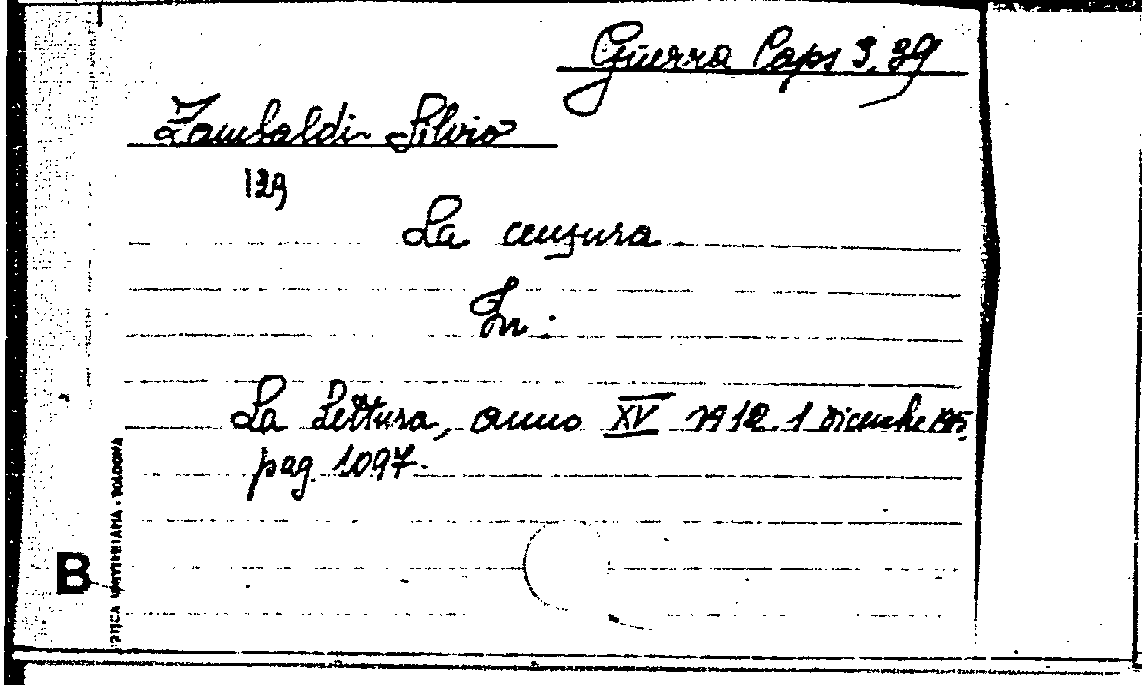 Guerra Caps 3.39
Zambaldi Silvio
129
La censura
In:
La Lettura, anno XV n° 12 1 Dicembre 1915,
pag. 1097.
B
UNIVERSITARIA - BOLOGNA